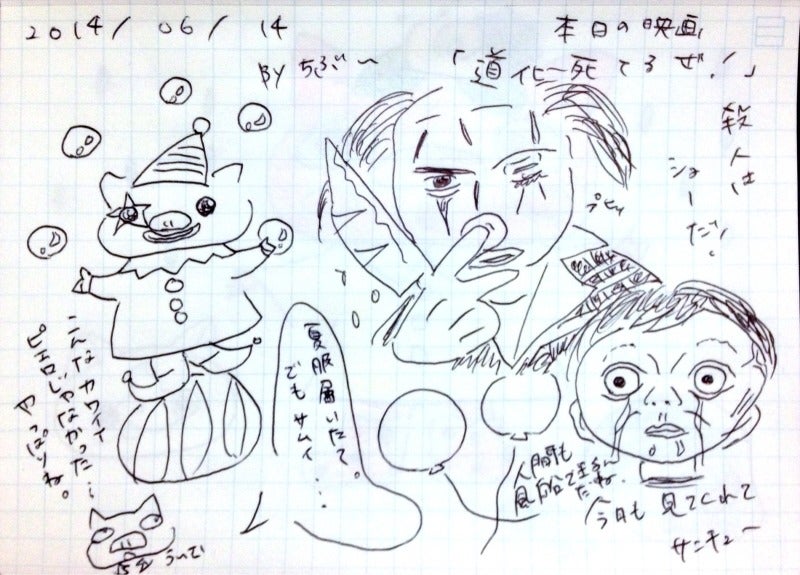 2014/ 06/ 14
本日の映画
BY ちぶ〜
「道化死てるぜ!」
殺人は
ショーだ!
こんなカワイイ
ピエロじゃなかった…
やっぱりね。
夏服届いたて。
でもサムイ…
人間も
風船で
だね。
今日も見てくれて
サンキュー